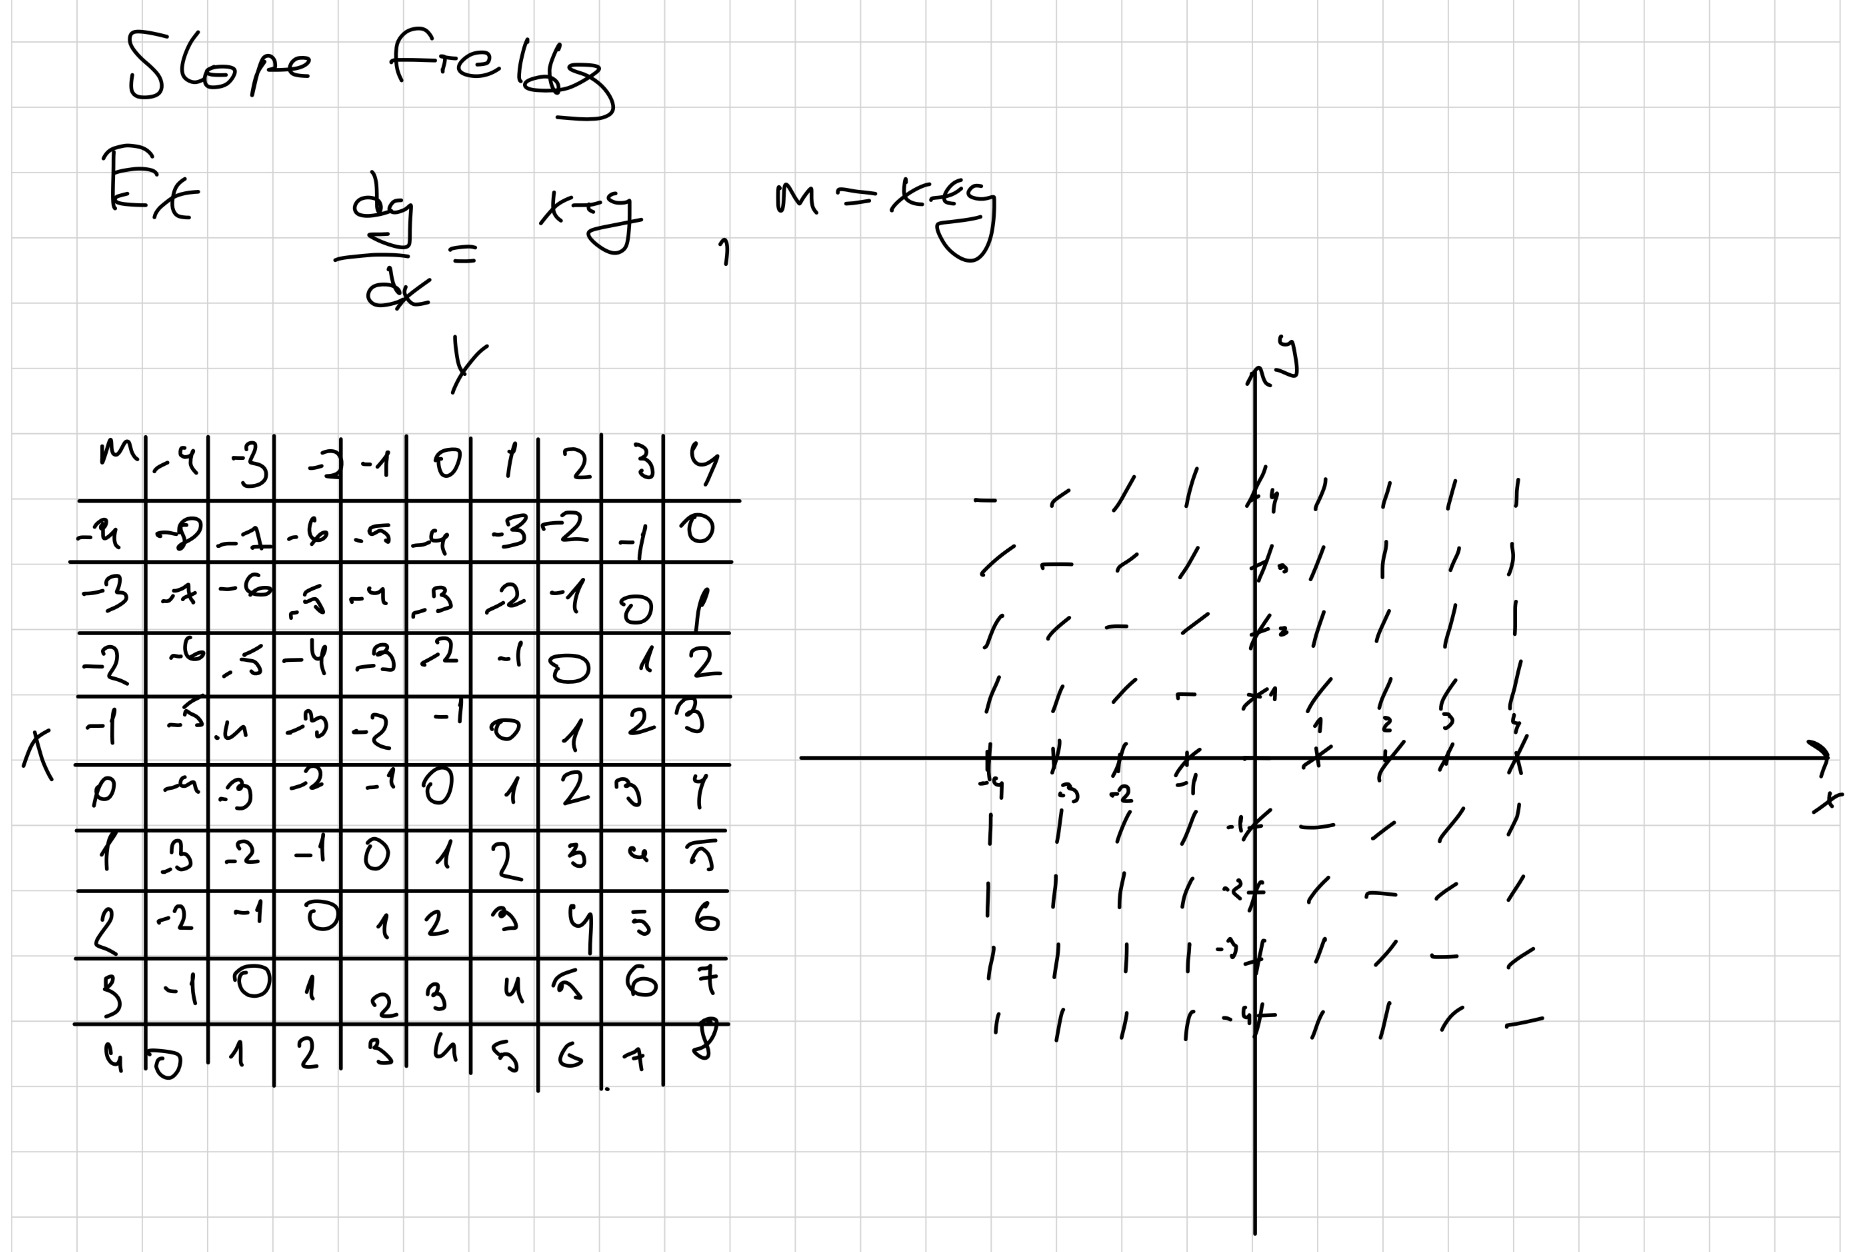 Slope fields
Ex dy/dx = x+y , m = x+y
y
m -4 -3 -2 -1 0 1 2 3 4
-4 -8 -7 -6 -5 -4 -3 -2 -1 0
-3 -7 -6 -5 -4 -3 -2 -1 0 1
-2 -6 -5 -4 -3 -2 -1 0 1 2
x -1 -5 -4 -3 -2 -1 0 1 2 3
0 -4 -3 -2 -1 0 1 2 3 4
1 -3 -2 -1 0 1 2 3 4 5
2 -2 -1 0 1 2 3 4 5 6
3 -1 0 1 2 3 4 5 6 7
4 0 1 2 3 4 5 6 7 8
y
4
3
2
1
1 2 3 4
-4 -3 -2 -1
x
-1
-2
-3
-4